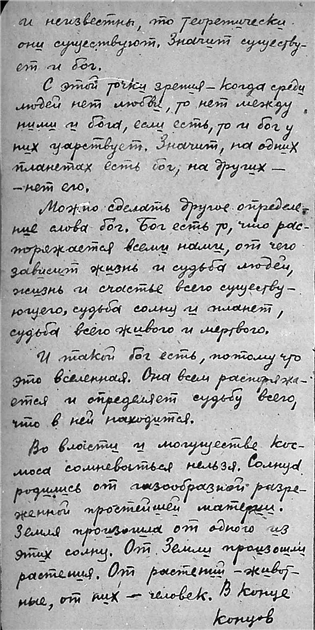 и неизвестны, то теоретически
они существуют. Значит существу-
ет и бог.
С этой точки зрения – когда среди
людей нет любви, то нет между
ними и бога, если есть, то и бог у
них царствует. Значит, на одних
планетах есть бог, на других –
– нет его.
Можно сделать другое определе-
ние слова бог. Бог есть то, что рас-
поряжается всеми нами, от чего
зависит жизнь и судьба людей,
жизнь и счастье всего существу-
ющего, судьба солнц и планет,
судьба всего живого и мертвого.
И такой бог есть, потому что
это вселенная. Она всем распоряжа-
ется и определяет судьбу всего,
что в ней находится.
Во власти и могуществе кос-
моса сомневаться нельзя. Солнца
родились от газообразной разре-
женной простейшей материи.
Земля произошла от одного из
этих солнц. От Земли произошли
растения. От растений – живот-
ные, от них – человек. В конце
концов